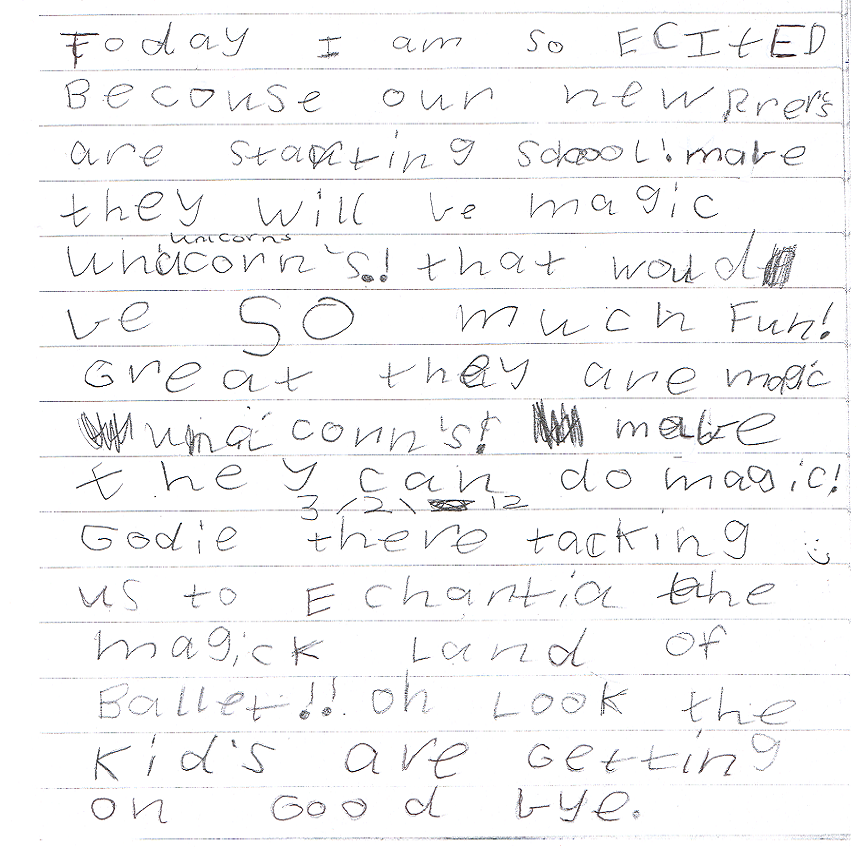 Today I am so ECItED
Becouse our new Prer's
are starting School! mabe
they will be magic
unicorns
unacorn's.! that would
be SO much Fun!
Great they are magic
unaconn's! mabe
they can do magic!
3/2\ 12
Godie there tacking
us to Echantia the
magick Land of
Ballet!! oh Look the
kid's are Getting
on Good bye.